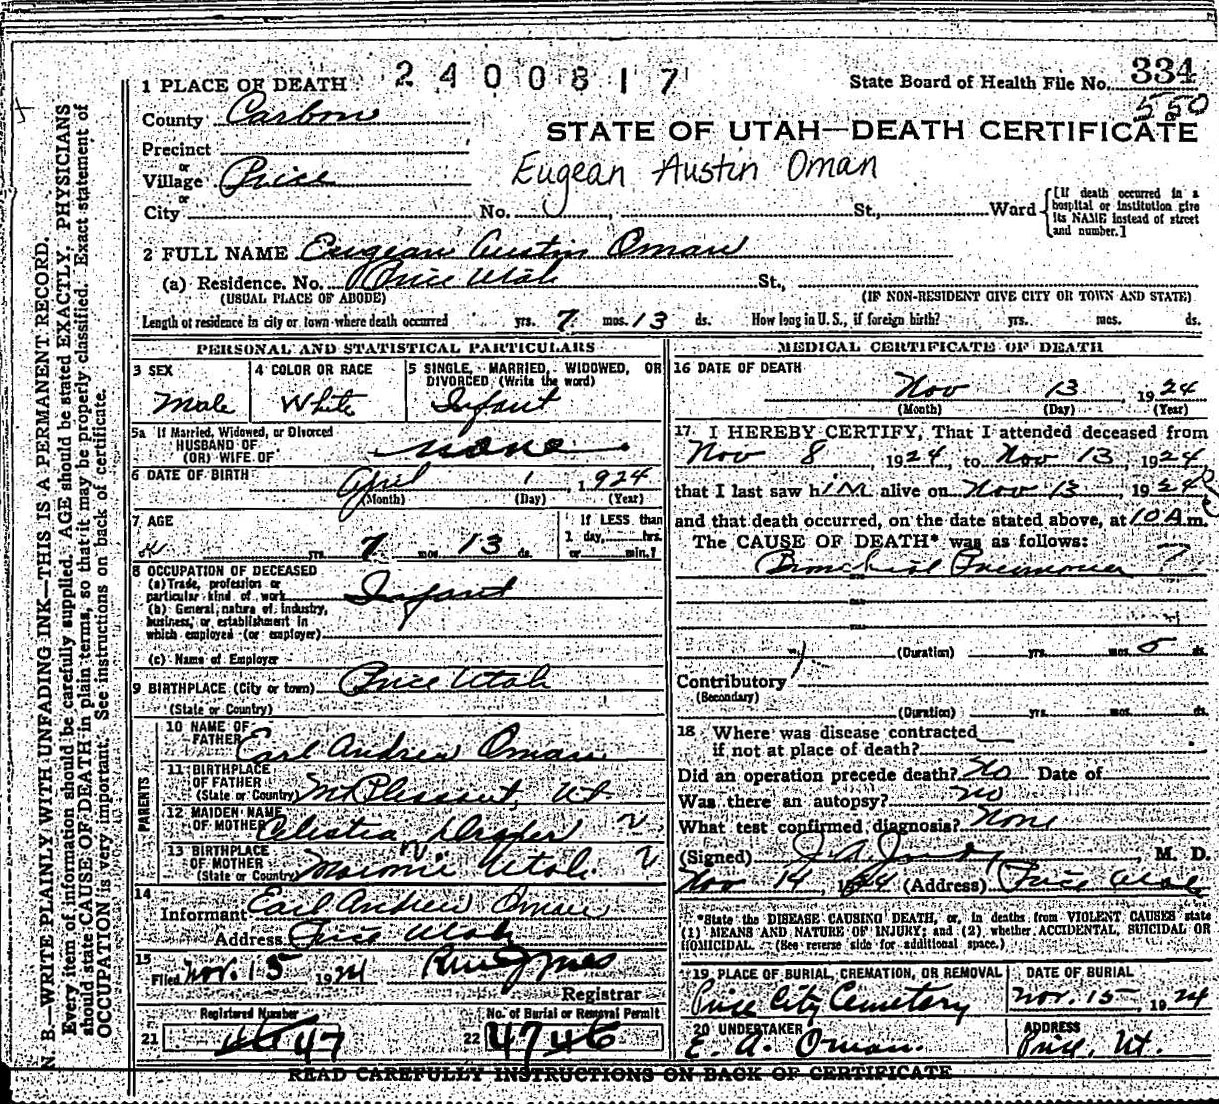 1 PLACE OF DEATH 2400817 State Board of Health File No. 334
550
County Carbon
STATE OF UTAH—DEATH CERTIFICATE
Precinct
or
Village Price Eugean Austin Oman
or
City No. St., Ward
[If death occurred in a hospital or institution give its NAME instead of street and number.]
2 FULL NAME Eugean Austin Oman
(a) Residence. No. Price Utah St.,
(USUAL PLACE OF ABODE) (IF NON-RESIDENT GIVE CITY OR TOWN AND STATE)
Length of residence in city or town where death occurred yrs. 7 mos. 13 ds. How long in U. S., if foreign birth? yrs. mos. ds.
PERSONAL AND STATISTICAL PARTICULARS
3 SEX
Male
4 COLOR OR RACE
White
5 SINGLE, MARRIED, WIDOWED, OR
DIVORCED (Write the word)
Infant
5a If Married, Widowed, or Divorced
HUSBAND OF
(OR) WIFE OF none
6 DATE OF BIRTH April 1, 1924
(Month) (Day) (Year)
7 AGE
yrs. 7 mos. 13 ds.
If LESS than
1 day, hrs.
or min.?
8 OCCUPATION OF DECEASED
(a) Trade, profession or
particular kind of work Infant
(b) General nature of industry,
business, or establishment in
which employed (or employer)
(c) Name of Employer
9 BIRTHPLACE (City or town) Price Utah
(State or Country)
PARENTS
10 NAME OF
FATHER Earl Andrew Oman
11 BIRTHPLACE
OF FATHER
(State or Country) Mt Pleasant, Ut.
12 MAIDEN NAME
OF MOTHER Celestia
13 BIRTHPLACE
OF MOTHER
(State or Country) Utah
14
Informant Earl Andrew Oman
Address Price Utah
15
Filed Nov. 15 1924
Registrar
Registered Number
21 47
No. of Burial or Removal Permit
22 47 46
MEDICAL CERTIFICATE OF DEATH
16 DATE OF DEATH
Nov 13, 1924
(Month) (Day) (Year)
17 I HEREBY CERTIFY, That I attended deceased from
Nov 8, 1924, to Nov 13, 1924
that I last saw him alive on Nov 13, 1924
and that death occurred, on the date stated above, at 10 A m.
The CAUSE OF DEATH* was as follows:
Bronchial Pneumonia
(Duration) yrs. mos. 5 ds.
Contributory
(Secondary)
(Duration) yrs. mos. ds.
18 Where was disease contracted
if not at place of death?
Did an operation precede death? No Date of
Was there an autopsy? no
What test confirmed diagnosis? None
(Signed) , M. D.
Nov 14, 1924 (Address) Price Utah
*State the DISEASE CAUSING DEATH, or, in deaths from VIOLENT CAUSES state
(1) MEANS AND NATURE OF INJURY; and (2) whether ACCIDENTAL, SUICIDAL OR
HOMICIDAL. (See reverse side for additional space.)
19 PLACE OF BURIAL, CREMATION, OR REMOVAL
Price City Cemetery
DATE OF BURIAL
Nov. 15 1924
20 UNDERTAKER
E. A. Oman.
ADDRESS
Price, Ut.
READ CAREFULLY INSTRUCTIONS ON BACK OF CERTIFICATE
N. B.—WRITE PLAINLY WITH UNFADING INK—THIS IS A PERMANENT RECORD.
Every item of information should be carefully supplied. AGE should be stated EXACTLY. PHYSICIANS
should state CAUSE OF DEATH in plain terms, so that it may be properly classified. Exact statement of
OCCUPATION is very important. See instructions on back of certificate.